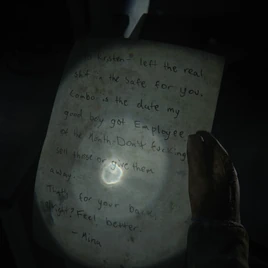 left the real
shit in the safe for you.
Combo is the date my
good boy got Employee
of the Month. Don't fucking
lose those or give them
away.
for your back.
right? Feel better.
- Mina